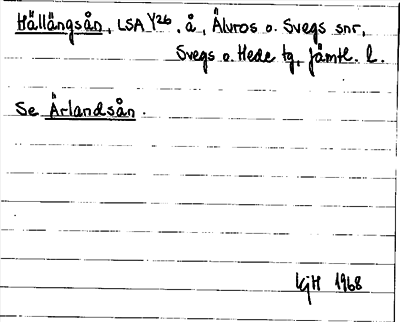 Hällängsån, LSA Y26, å, Älvros o. Svegs snr,
Svegs o. Hede tg, Jämtl. l.
Se Ärlandsån.
KjH 1968